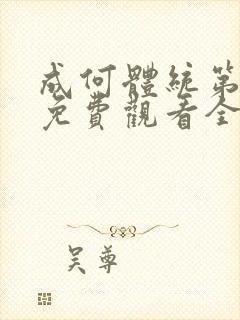 成何體統第
免費觀看全
吴尊